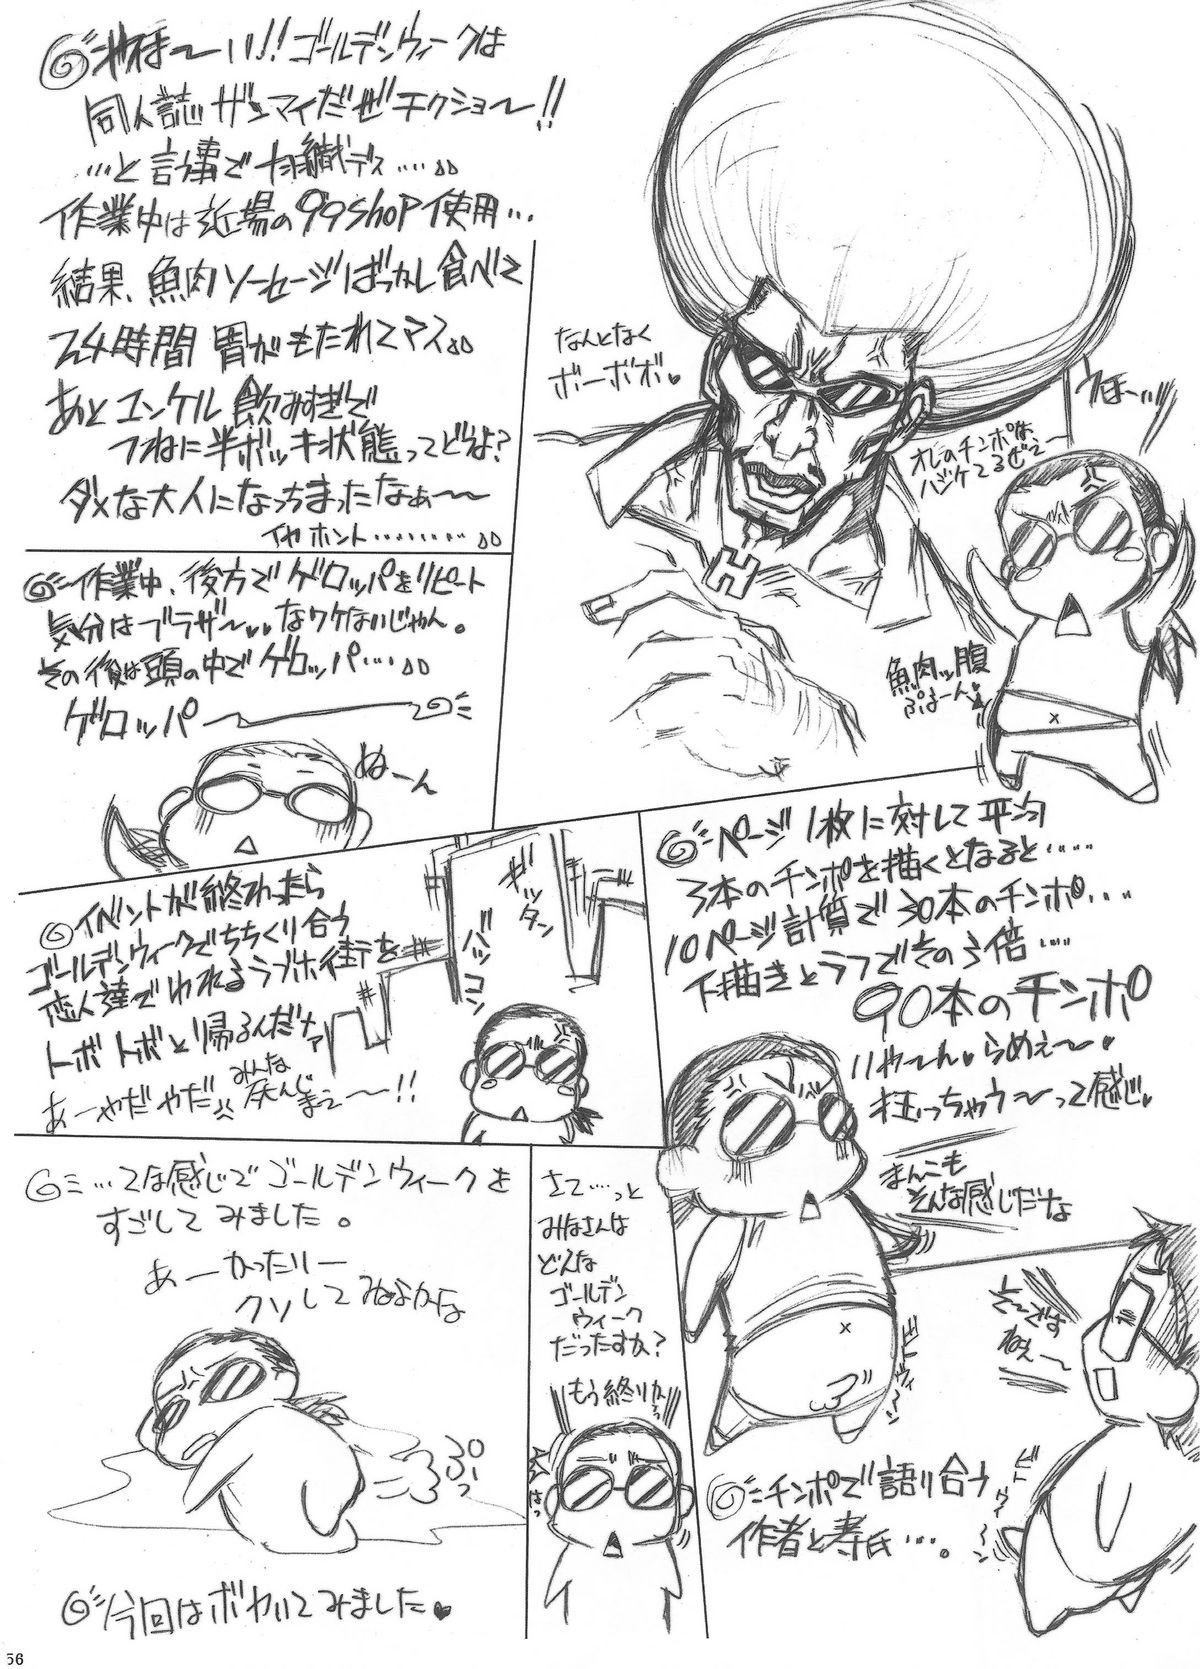 やほ〜い!!ゴールデンウィークは
同人誌ザンマイだぜチクショ〜!!
…と言う事で羽織デス……
作業中は近場の99shop使用…
結果、魚肉ソーセージばっかし食べて
24時間胃がもたれてマス
あとユンケル飲みすぎで
つねに半ボッキ状態ってどうよ?
ダメな大人になっちまったなぁ〜〜
イヤホント………
なんとなく
ボーボボ♥
うほーッ!!
オレのチンポは
ハジケてるぜ〜
魚肉ッ腹
ぷよーん♥
作業中、後方でゲロッパをリピート
気分はブラザ〜♥♥なワケないじゃん。
その後は頭の中でゲロッパ…
ゲロッパ〜
ぬーん
ページ1枚に対して平均
3本のチンポを描くとなると……
10ページ計算で30本のチンポ…
下描きとラフでその3倍……
90本のチンポ
いや〜ん♥らめぇ〜♥
狂っちゃう〜って感じ♥
まんこも
そんな感じだなよ
イベントが終わったら
ゴールデンウィークでちちくり合う
恋人達で
ラブホ街を
トボトボと帰るんだナァ
あーやだやだ
みんな
まえ〜〜!!
ギッタン
バッコン
…てな感じでゴールデンウィークを
すごしてみました。
あーかったりー
クソしてねよかな
ぷぅっ
今回はボヤいてみました♥
さて…っと
みなさんは
どんな
ゴールデン
ウィーク
だったすか?
もう終りかっ
はっ
そーですね
ねぇ〜
チンポで語り合う
作者と寿氏…。
56